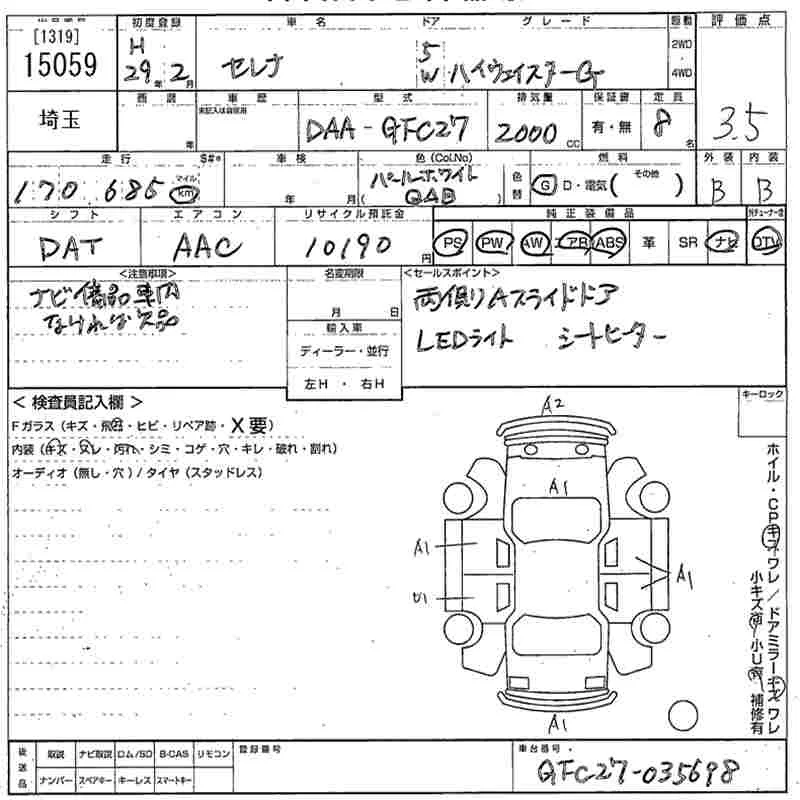 出品番号 初度登録 車名 ドア グレード 駆動 評価点
[1319]
15059
H 29年 2月 セレナ 5 W ハイウェイスターG 2WD 4WD
埼玉 車歴 型式 排気量 保証書 定員
未記入は自家用
年 DAA-GFC27 2000 CC 有・無 8名 3.5
走行 車検 色(Col.No) 燃料 外装 内装
170,685 マイル km 年 月 パールホワイト QAB 色替 G D・電気( その他 ) B B
シフト エアコン リサイクル預託金 純正装備品
DAT AAC 10190円 PS PW AW エアB ABS 革 SR ナビ DTV
<注意事項> 名変期限 <セールスポイント>
ナビ備品車内 両側りAスライドドア
なければ欠品 月 日 LEDライト シートヒーター
輸入車
ディーラー・並行
左H・右H
< 検査員記入欄 > キーロック
Fガラス(キズ・飛石・ヒビ・リペア跡・X要)
内装(キズ・スレ・汚れ・シミ・コゲ・穴・キレ・破れ・割れ)
オーディオ(無し・穴)/タイヤ(スタッドレス)
A2
A1
A1
A1
U1
A1
ホイル・CPキズワレ/ドアミラーキズワレ
小キズ有 小U有 補修有
後送品 取説 ナビ取説 ロム/SD B-CAS リモコン 登録番号 車台番号
ナンバー スペアキー キーレス スマートキー GFC27-035698